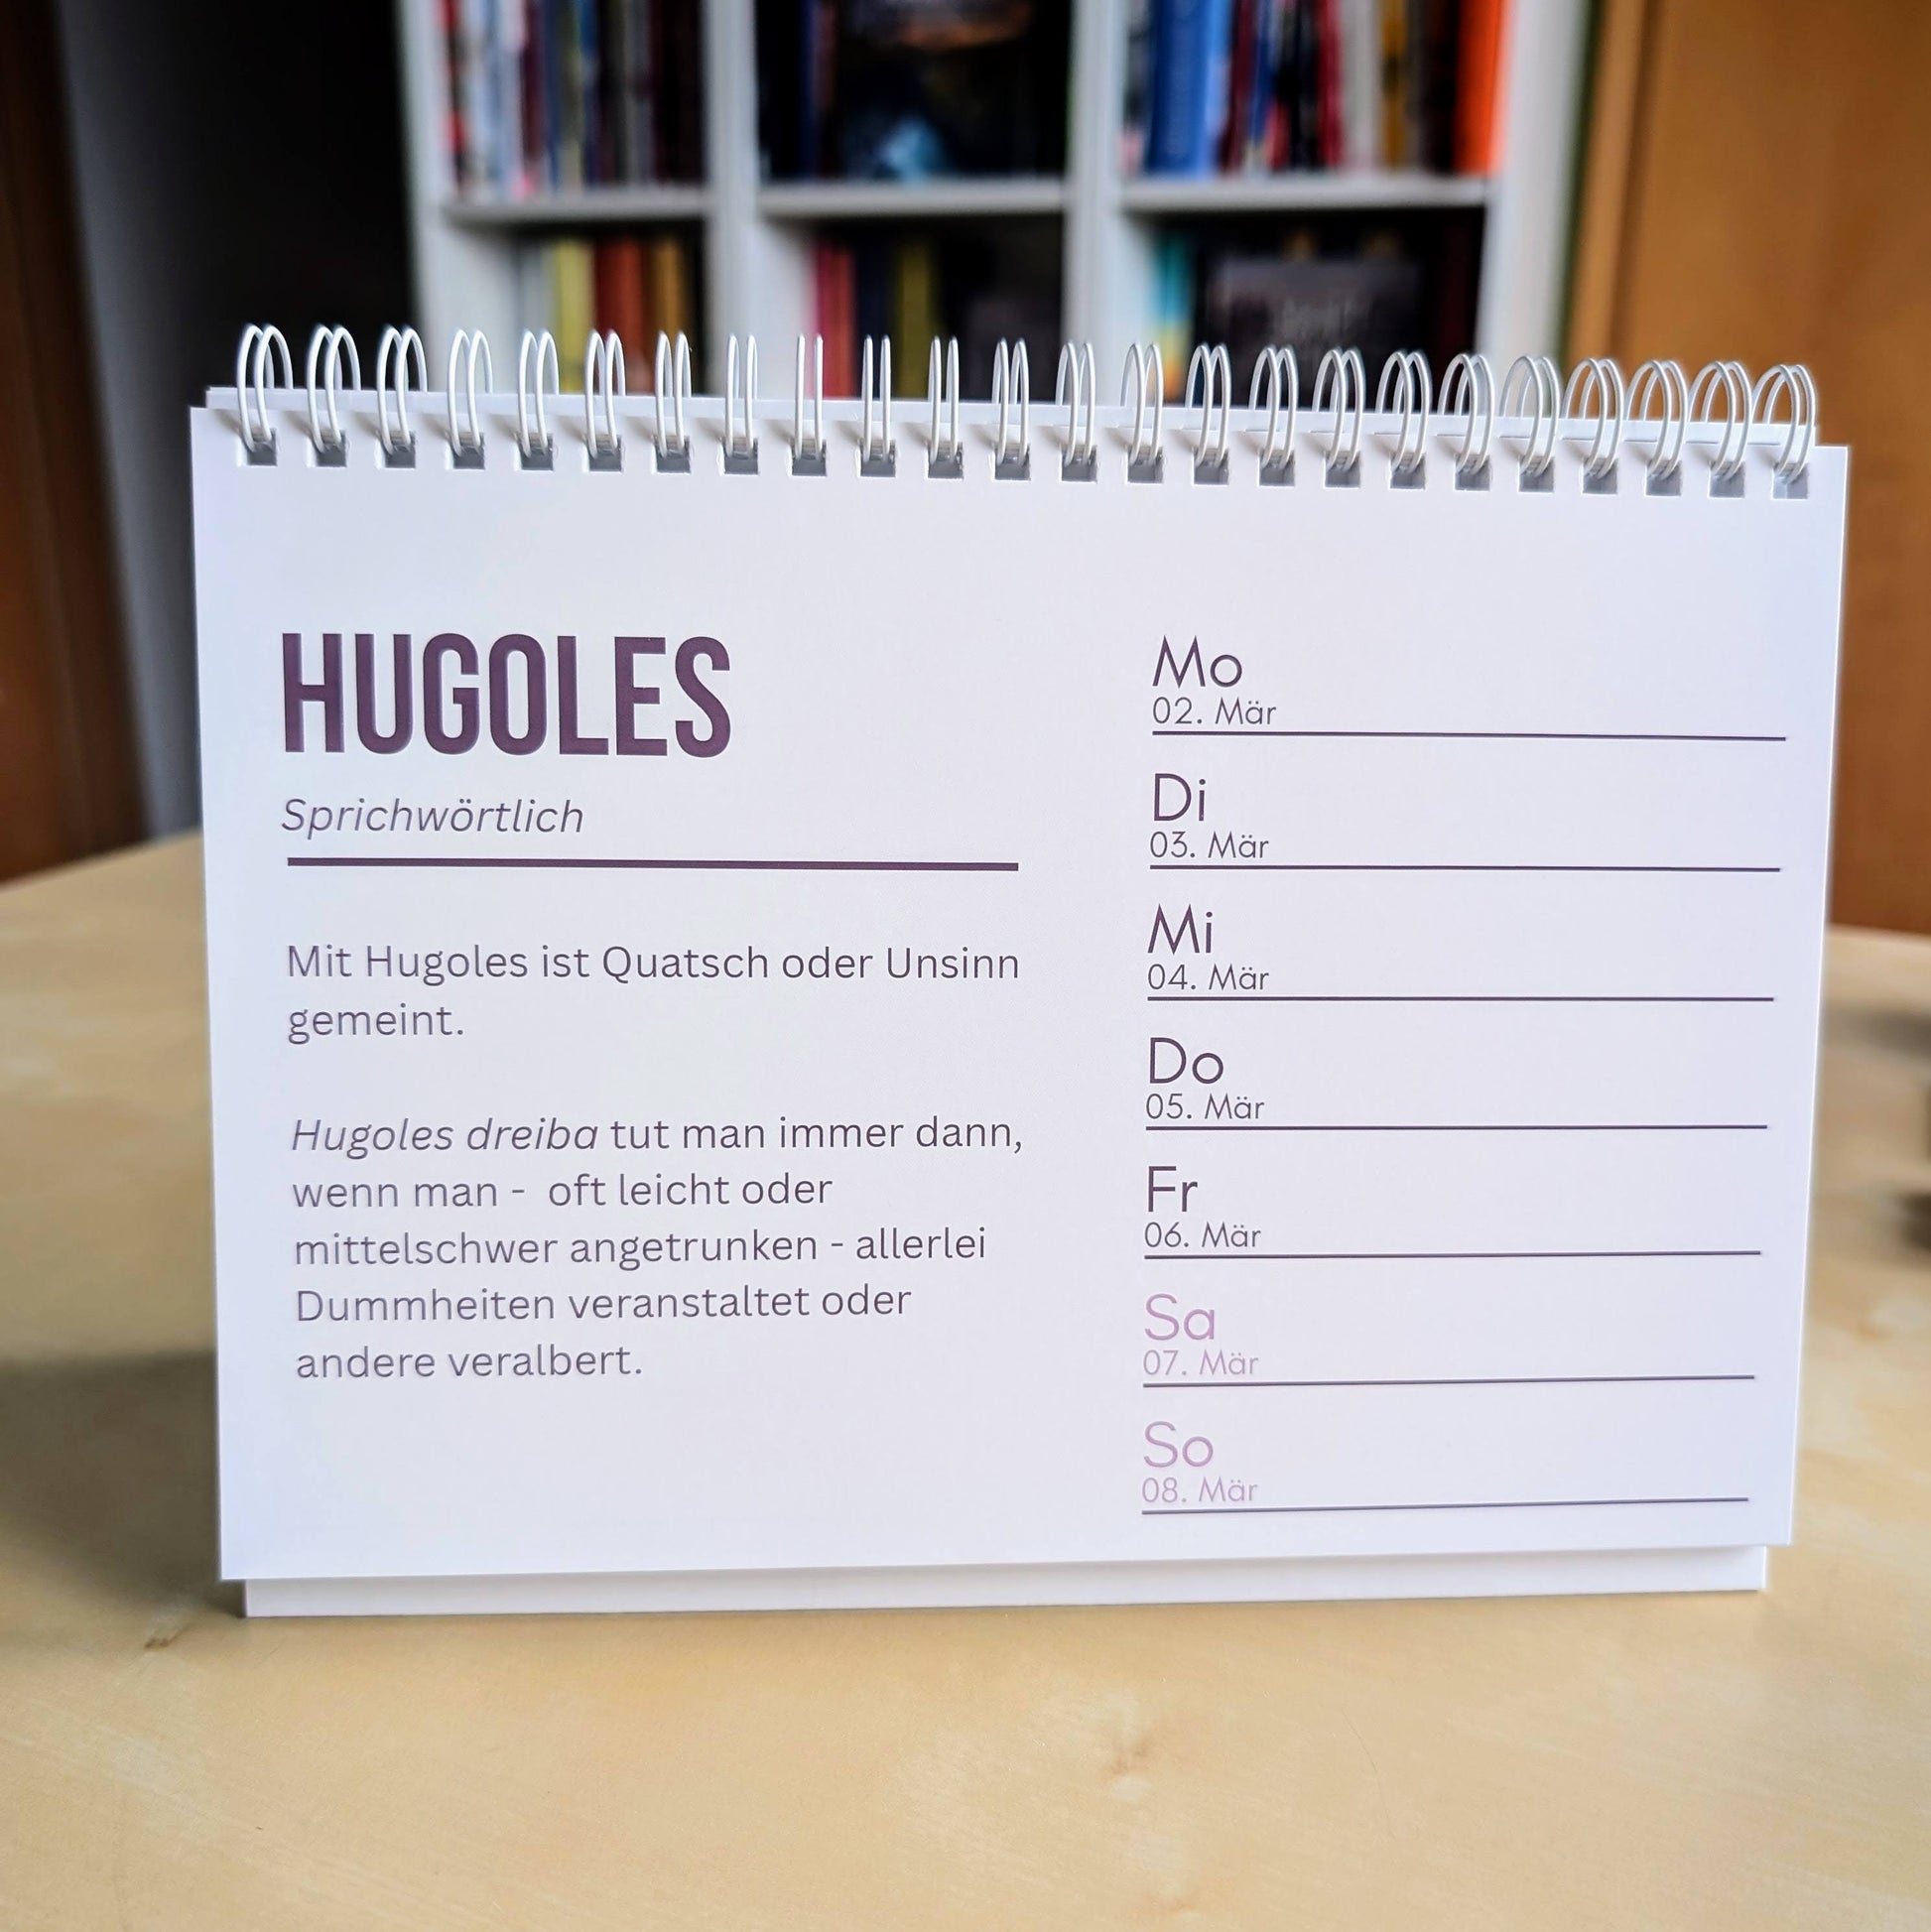 HUGOLES
Sprichwörtlich
Mit Hugoles ist Quatsch oder Unsinn
gemeint.
Hugoles dreiba tut man immer dann,
wenn man -  oft leicht oder
mittelschwer angetrunken - allerlei
Dummheiten veranstaltet oder
andere veralbert.
Mo
02. Mär
Di
03. Mär
Mi
04. Mär
Do
05. Mär
Fr
06. Mär
Sa
07. Mär
So
08. Mär